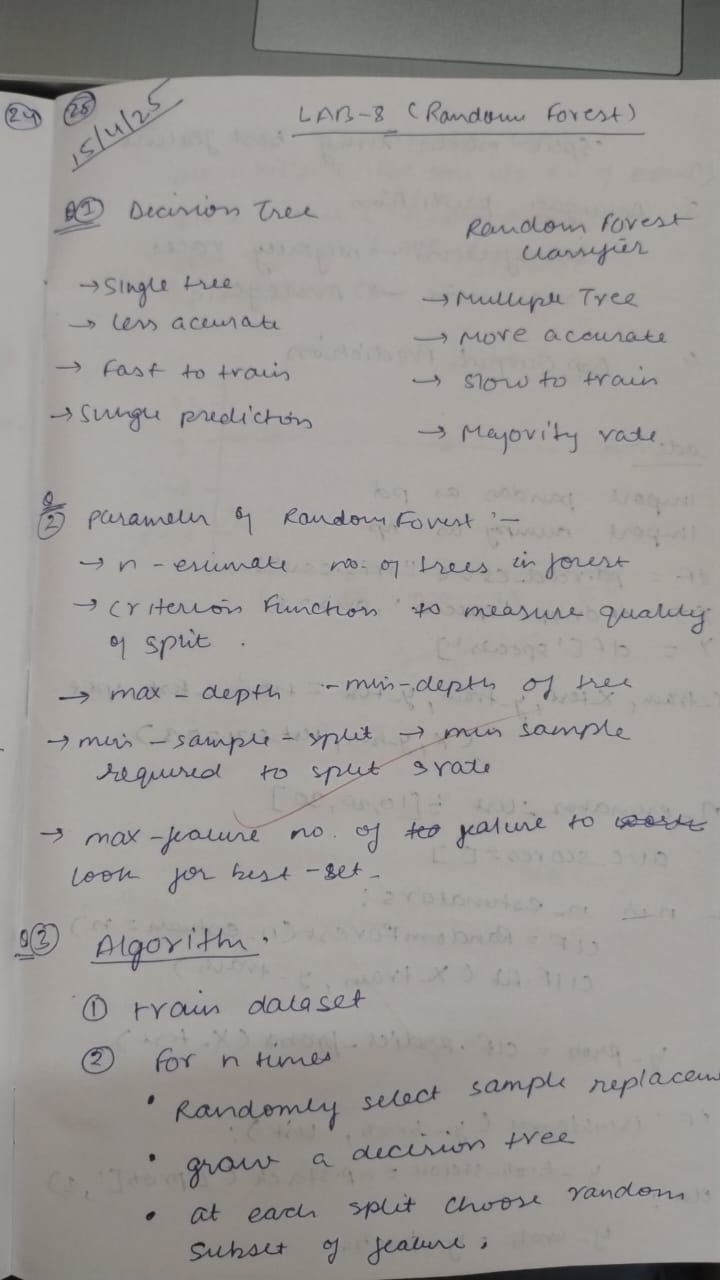 24 25
15/4/25
LAB-8 (Random Forest)
Q1 Decision Tree
Random Forest
Classifier
→ Single tree
→ Multiple Tree
→ less accurate
→ More accurate
→ Fast to train
→ Slow to train
→ Single prediction
→ Majority rate
Q2 Parameter of Random Forest :-
→ n-estimate no. of trees in forest
→ criterion Function to measure quality
of split.
→ max-depth - min-depth of tree
→ min-sample-split → min sample
required to split
→ max-feature no. of feature to
look for best-set
Q3 Algorithm.
① train dataset
② For n times
• Randomly select sample replacem
• grow a decision tree
• at each split choose random
subset of feature;